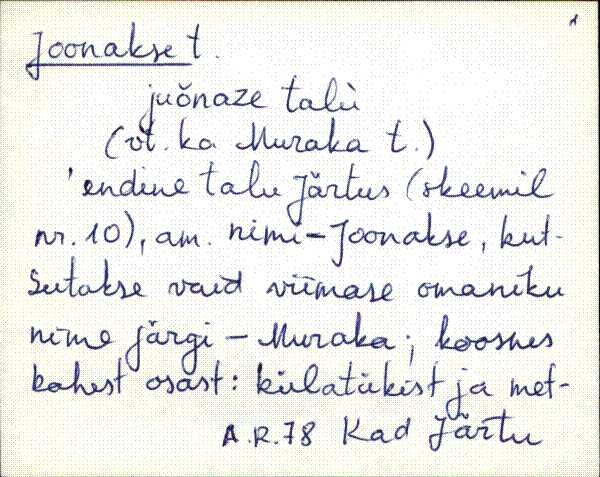 1
Joonakse t.
juõnaze talù
(vt. ka Muraka t.)
'endine talu Järtus (skeemil
nr. 10), am. nimi – Joonakse, kut-
sutakse vaid viimase omaniku
nime järgi – Muraka; koosnes
kahest osast: külatükist ja met-
A.R.78 Kad Järtu